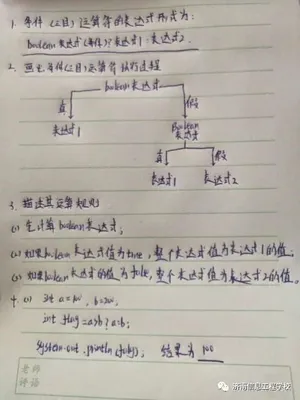 1. 条件(三目)运算符的表达式形式为:
boolean表达式(条件)?表达式1:表达式2.
2. 画出条件(三目)运算符执行过程
boolean表达式
真 假
表达式1 Boolean
表达式
真 假
表达式1 表达式2
3. 描述其运算规则
(1) 先计算boolean表达式;
(2) 如果boolean表达式值为true,整个表达式值为表达式1的值。
(3) 如果boolean表达式的值为false,整个表达式值为表达式2的值。
4. (1) int a=100, b=200,
int =a>b?a:b;
System.out.println( ); 结果为 100
老师
评语
济南信息工程学校